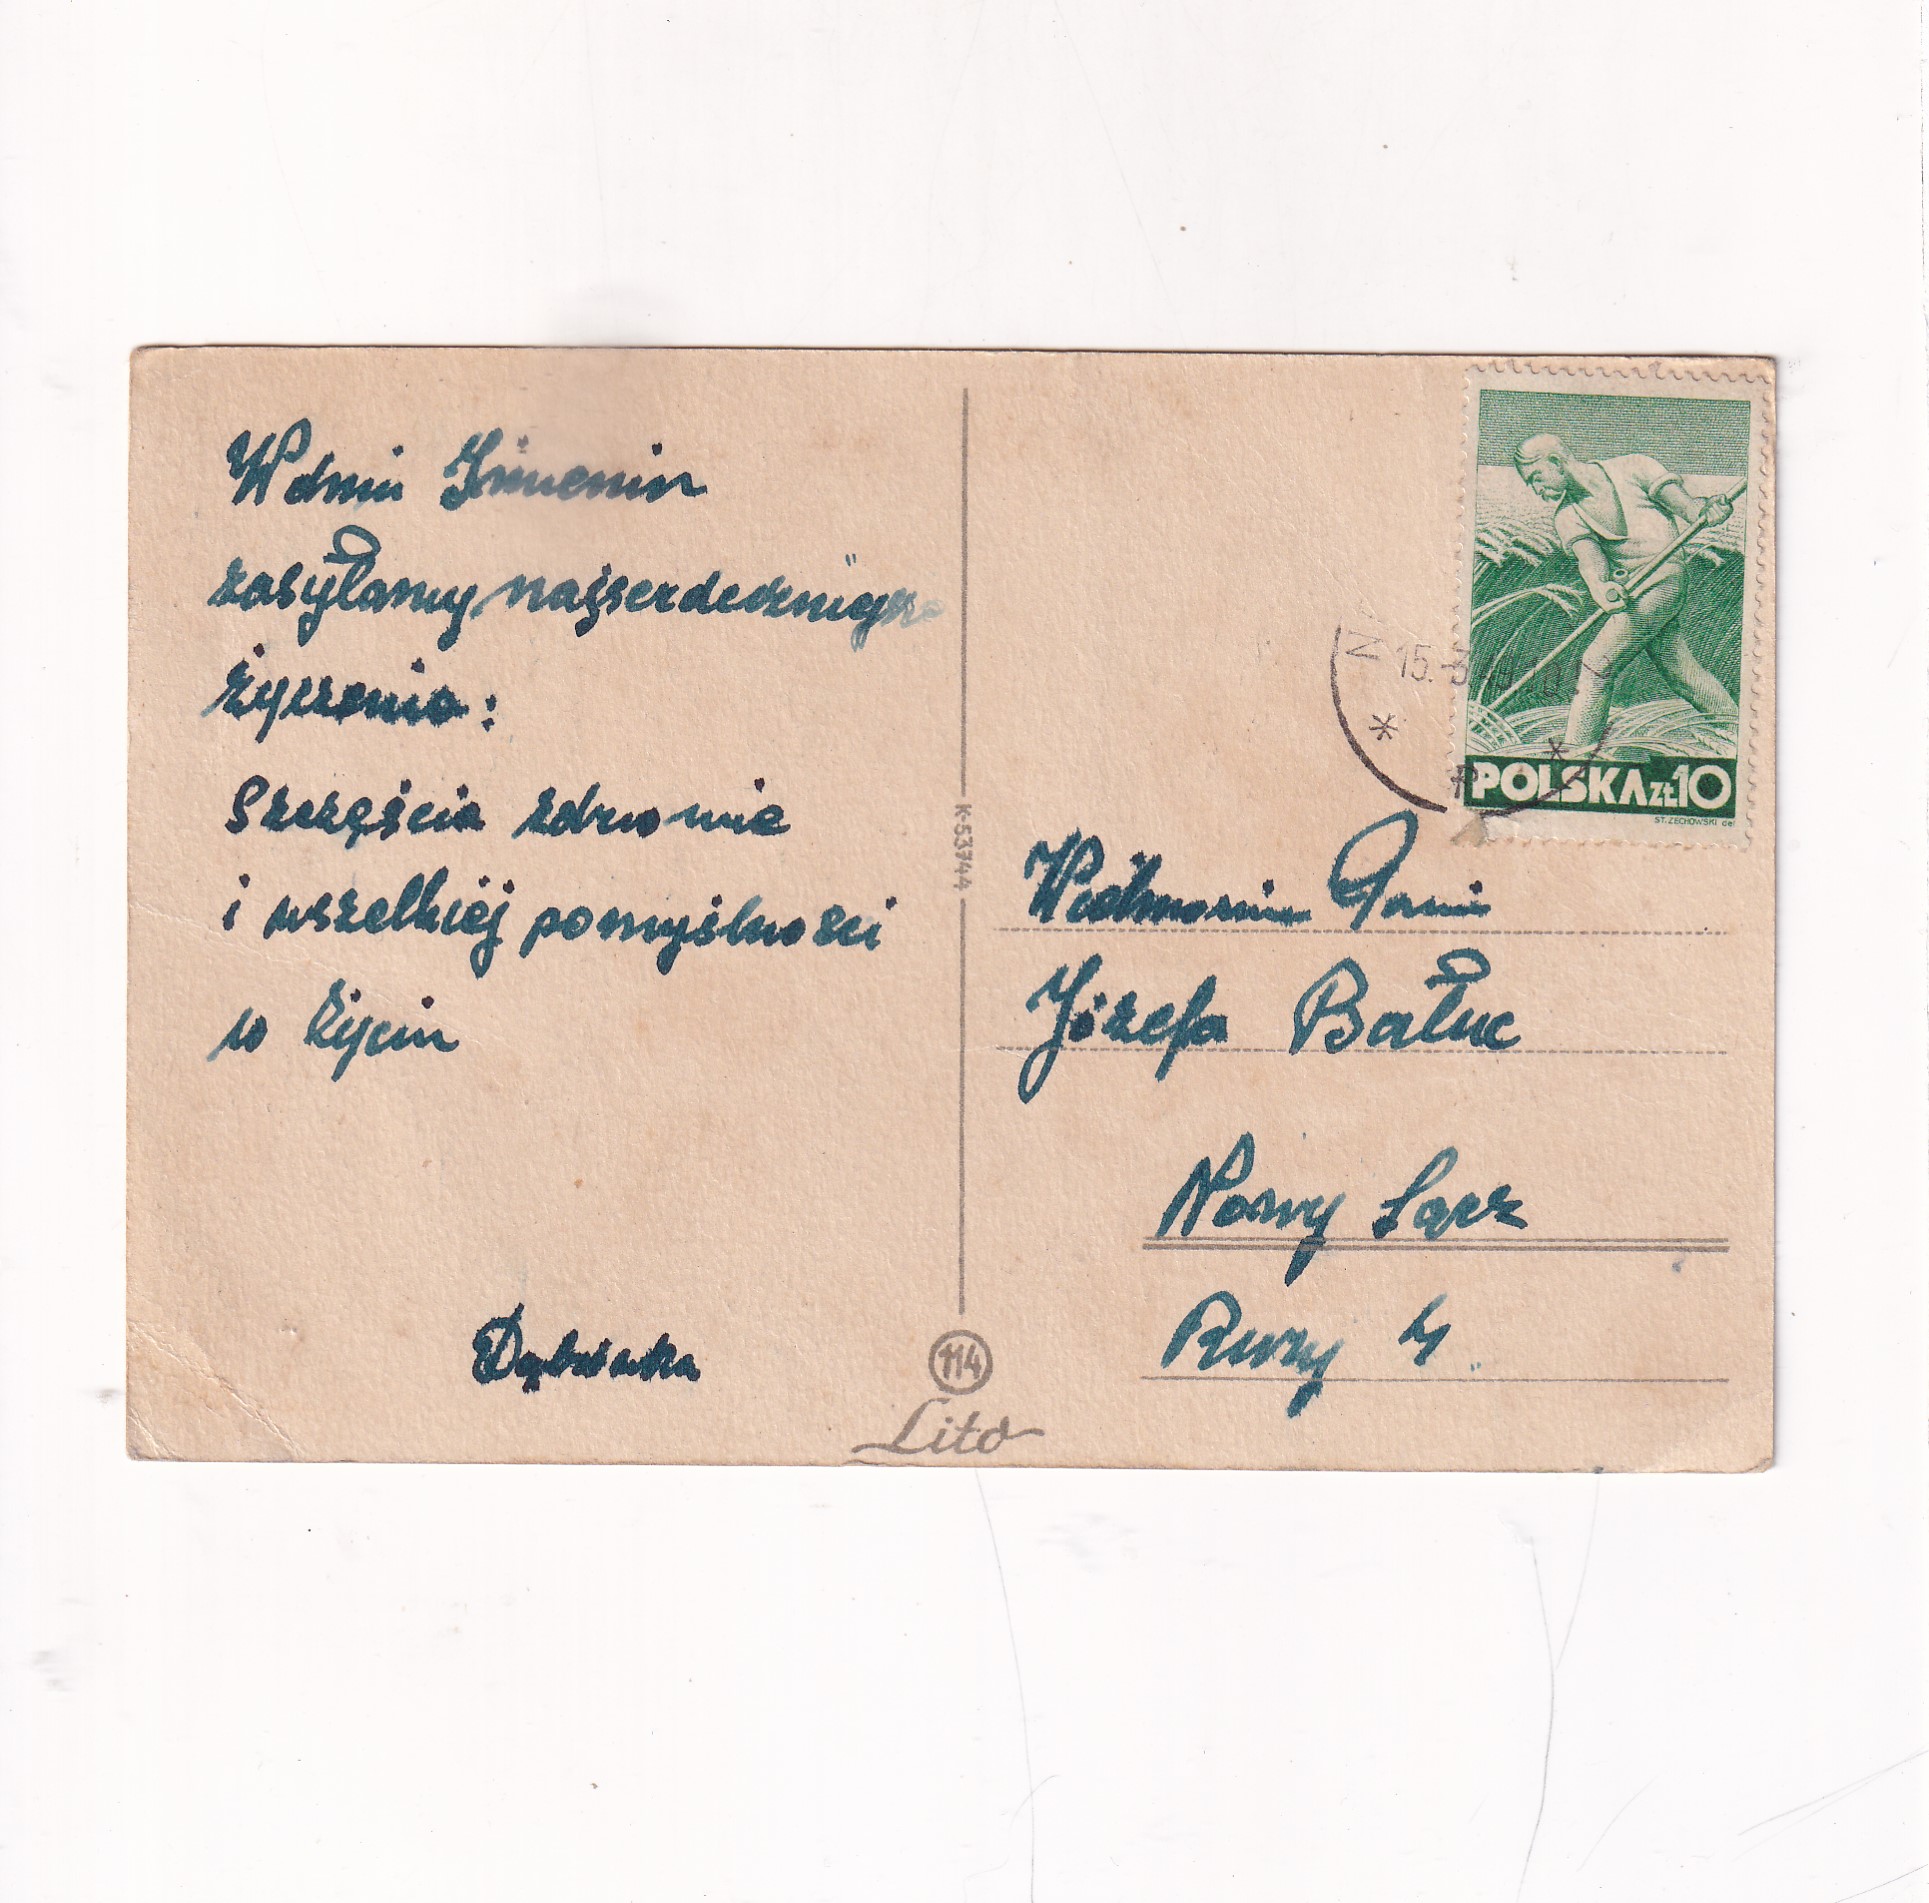 W dniu Imienin
zasyłamy najserdeczniejsze
życzenia:
Szczęścia zdrowia
i wszelkiej pomyślności
w życiu
Dąbrówka
K-53744
114
Lito
15.3.
POLSKA ZŁ 10
ST. ŻECHOWSKI del
Wielmożna Pani
Józefa Bałuc
Nowy Sącz